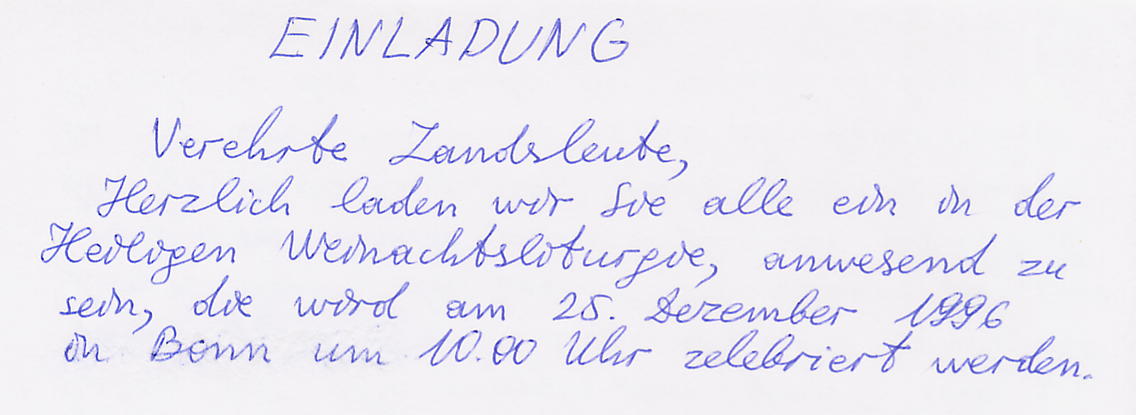 EINLADUNG
Verehrte Landsleute,
Herzlich laden wir Sie alle ein in der
Heiligen Weinachtsliturgie, anwesend zu
sein, die wird am 25. Dezember 1996
in Bonn um 10.00 Uhr zelebriert werden.